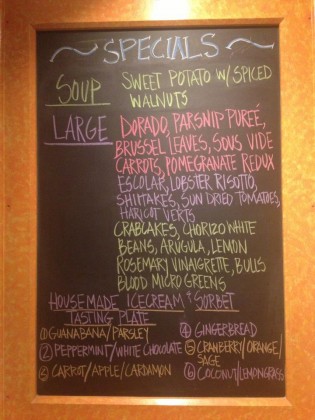 ~ SPECIALS ~
SOUP SWEET POTATO W/ SPICED
WALNUTS
LARGE DORADO, PARSNIP PUREÉ,
BRUSSEL LEAVES, SOUS VIDE
CARROTS, POMEGRANATE REDUX
ESCOLAR, LOBSTER RISOTTO,
SHIITAKES, SUN DRIED TOMATOES,
HARICOT VERTS
CRABCAKES, CHORIZO WHITE
BEANS, ARUGULA, LEMON
ROSEMARY VINAIGRETTE, BULLS
BLOOD MICRO GREENS
HOUSEMADE ICECREAM + SORBET
TASTING PLATE
① GUANABANA/PARSLEY
② PEPPERMINT/WHITE CHOCOLATE
③ CARROT/APPLE/CARDAMON
④ GINGERBREAD
⑤ CRANBERRY/ORANGE/
SAGE
⑥ COCONUT/LEMONGRASS